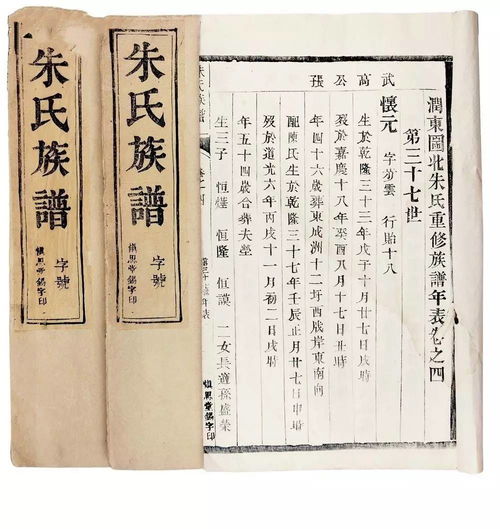 潤東圌北朱氏重修族譜年表卷之四
第三十七世
武 懷元 字芳雲 行貽十八
高 生於乾隆三十三年戊子十月廿七日戌時
公 歿於嘉慶十八年癸酉八月十七日丑時
張 年四十六歲葬東成洲十二圩西成岸東南向
配陳氏生於乾隆三十七年壬辰正月廿七日申時
歿於道光六年丙戌十一月初二日戌時
年五十四歲合葬夫塋
生三子 恒權 恒隆 恒謨 二女長適孫盛榮
朱氏族譜 卷之四 年表 慎思堂錫字印
朱氏族譜
字號
慎思堂錫字印
朱氏族譜
字號
慎思堂錫字印